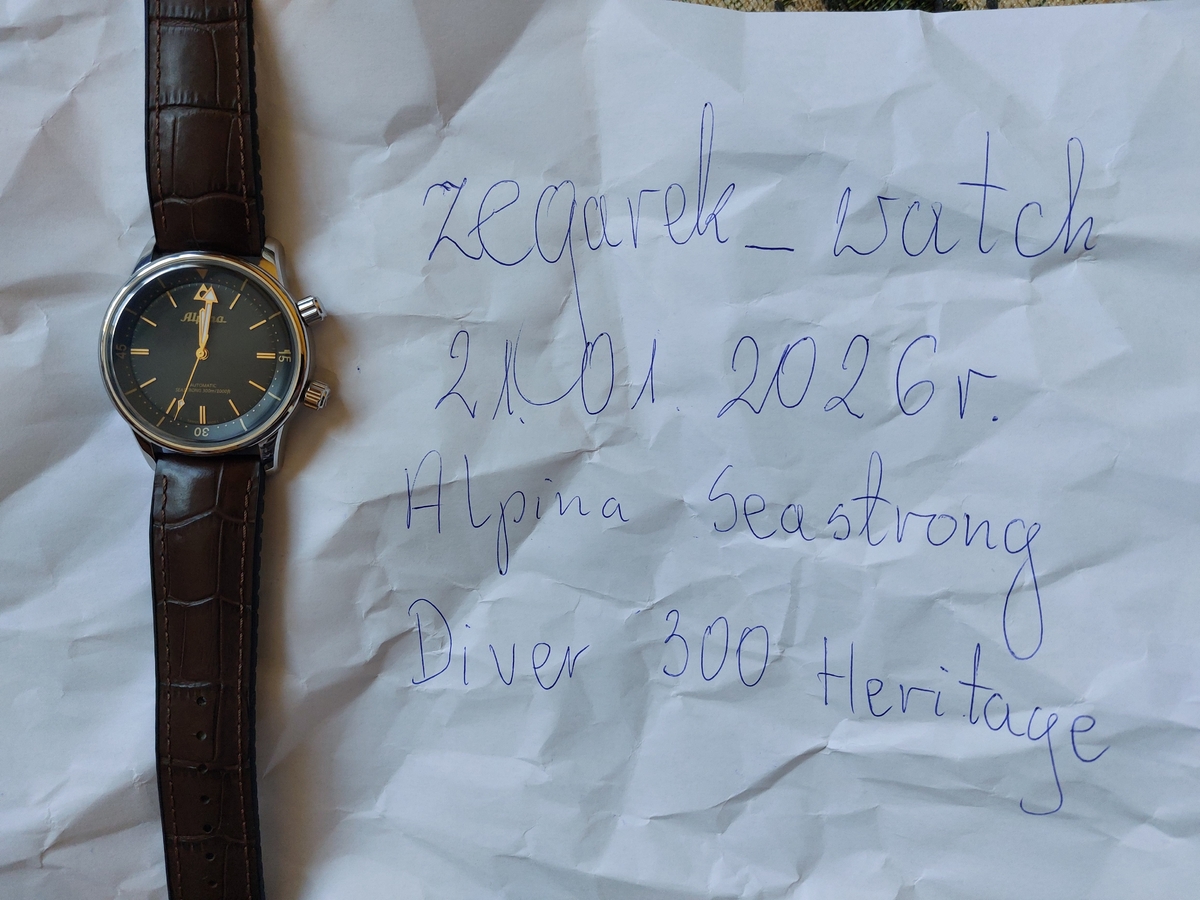 Alpina
15
45
AUTOMATIC
30
zegarek_watch
21.01.2026r.
Alpina Seastrong
Diver 300 Heritage